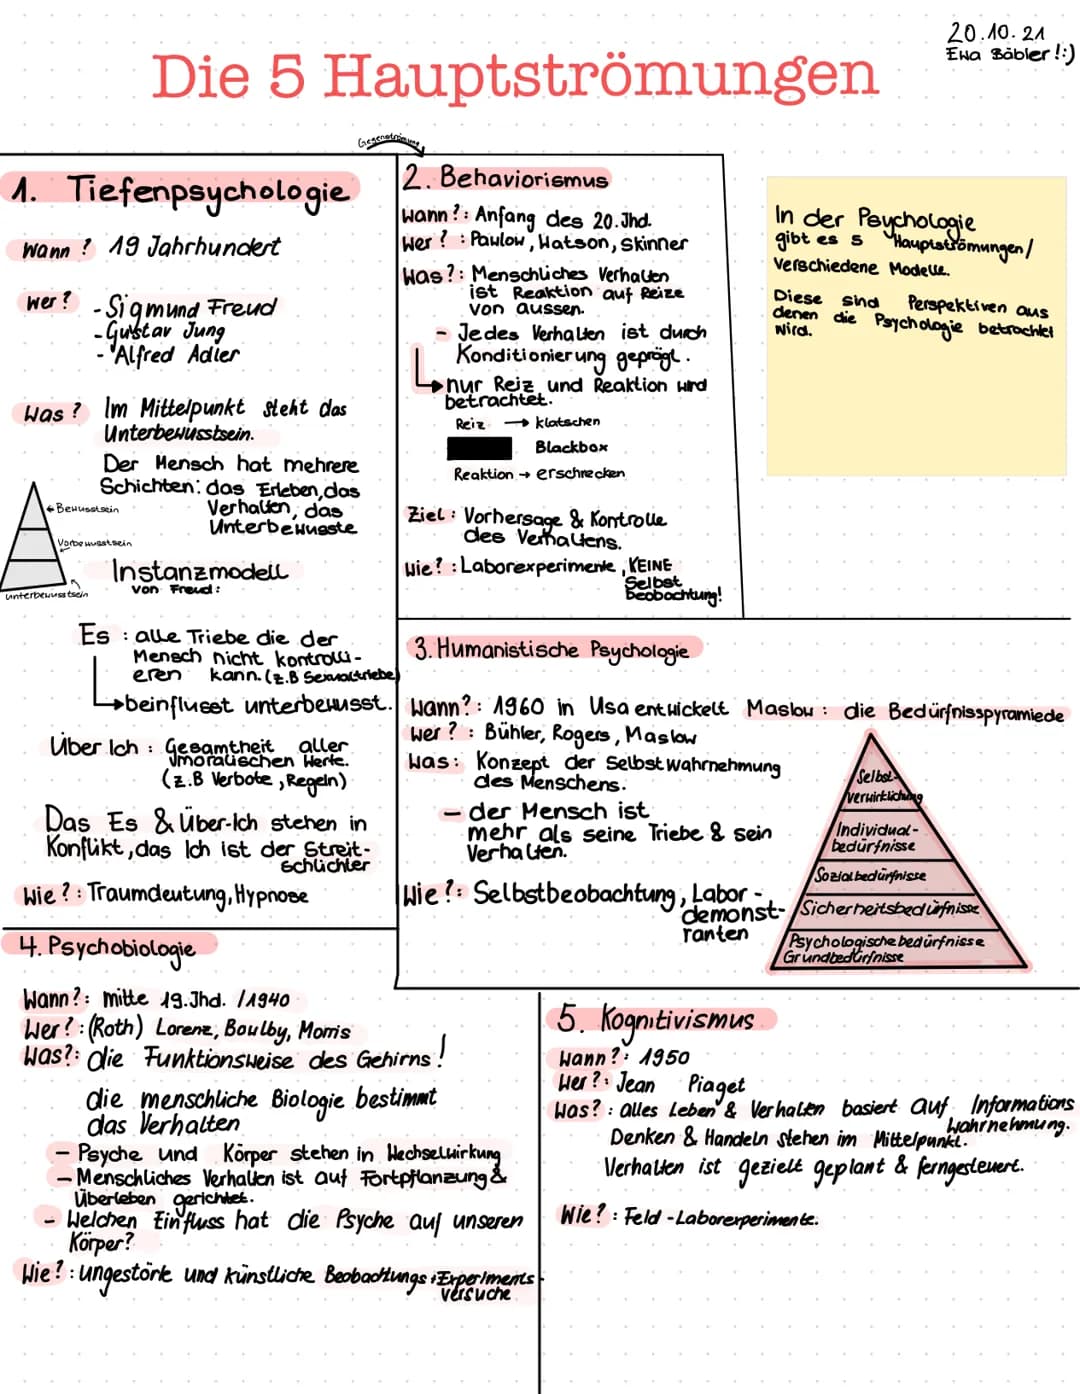 20.10.21
Die 5 Hauptströmungen
Gegenströmung
1. Tiefenpsychologie
Wann? 19 Jahrhundert
Wer? - Sigmund Freud
- Gustav Jung
- Alfred Adler
Was? Im Mittelpunkt steht das
Unterbewusstsein.
Der Mensch hat mehrere
Schichten: das Erleben, das
Verhalten, das
Unterbewusste
Bewusstsein
Vorbewusstsein
unterbewusstsein
Instanzmodell
von Freud:
Es : alle Triebe die der
Mensch nicht kontrolli-
eren kann. (z.B Sexualtriebe)
beinflusst unterbewusst.
Über Ich : Gesamtheit aller
moralischen Werte.
(z.B Verbote, Regeln)
Das Es & Über-Ich stehen in
Konflikt, das Ich ist der Streit-
schlichter
Wie?: Traumdeutung, Hypnose
2. Behaviorismus
Wann?: Anfang des 20. Jhd.
Wer? : Pawlow, Watson, Skinner
Was?: Menschliches Verhalten
ist Reaktion auf Reize
von aussen.
- Jedes Verhalten ist durch
Konditionierung geprägt.
nur Reiz und Reaktion wird
betrachtet.
Reiz → klatschen
Blackbox
Reaktion → erschrecken
Ziel : Vorhersage & Kontrolle
des Verhaltens.
Wie? : Laborexperimente, KEINE
Selbst
beobachtung!
In der Psychologie
gibt es 5 Hauptströmungen/
verschiedene Modelle.
Diese sind Perspektiven aus
denen die Psychologie betrachtet
wird.
3. Humanistische Psychologie
Wann?: 1960 in Usa entwickelt
Wer? : Bühler, Rogers, Maslow
Was: Konzept der Selbstwahrnehmung
des Menschens.
- der Mensch ist
mehr als seine Triebe & sein
Verhalten.
Wie?: Selbstbeobachtung, Labor-
demonst-
ranten
Maslow : die Bedürfnisspyramiede
Selbst-
verwirklichung
Individual-
bedürfnisse
Sozialbedürfnisse
Sicherheitsbedürfnisse
Psychologische bedürfnisse
Grundbedürfnisse
4. Psychobiologie
Wann?: mitte 19. Jhd. /1940
Wer?: (Roth) Lorenz, Boulby, Morris
Was?: die Funktionsweise des Gehirns!
die menschliche Biologie bestimmt
das Verhalten
- Psyche und Körper stehen in Wechselwirkung
- Menschliches Verhalten ist auf Fortpflanzung &
Überleben gerichtet.
- Welchen Einfluss hat die Psyche auf unseren
Körper?
Wie? : ungestörte und künstliche Beobachtungs + Experiments
versuche
5. Kognitivismus
Wann?: 1950
Wer?: Jean Piaget
Was? : alles Leben & Verhalten basiert auf Informations
wahrnehmung.
Denken & Handeln stehen im Mittelpunkt.
Verhalten ist gezielt geplant & ferngesteuert.
Wie? : Feld - Laborexperimente.